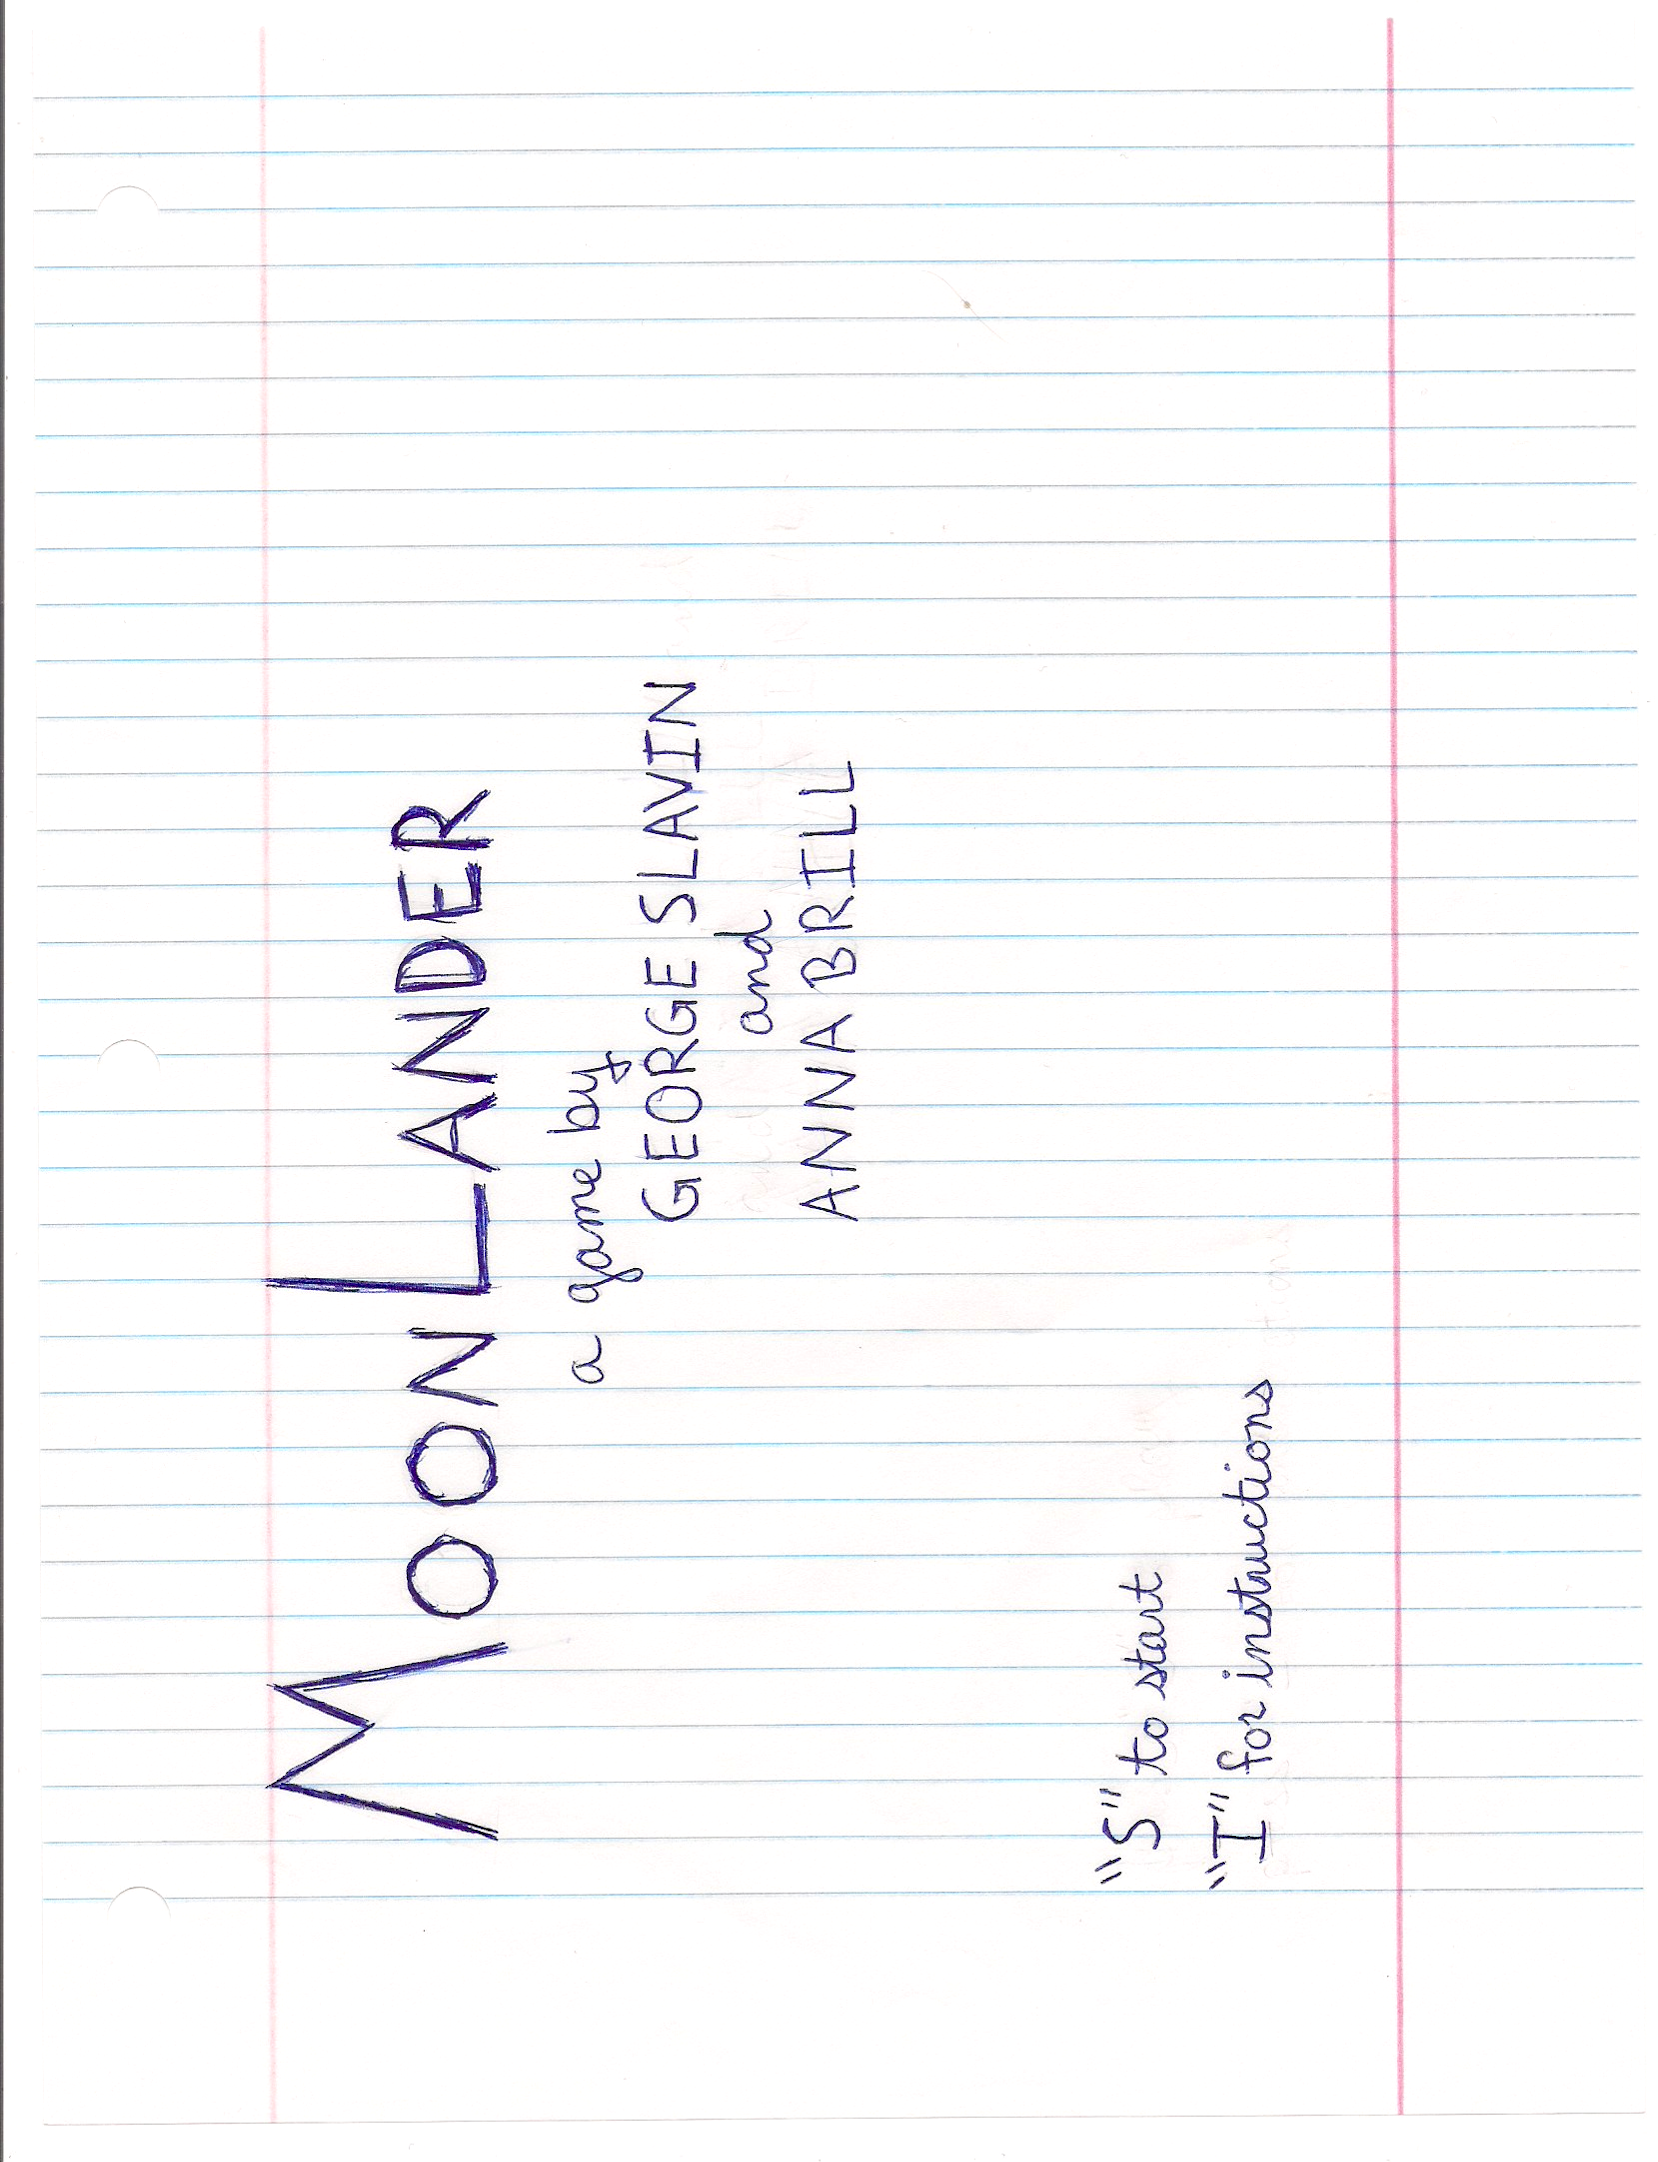 MOON LANDER
a game by
GEORGE SLAVIN
and
ANNA BRILL
"S" to start
"I" for instructions